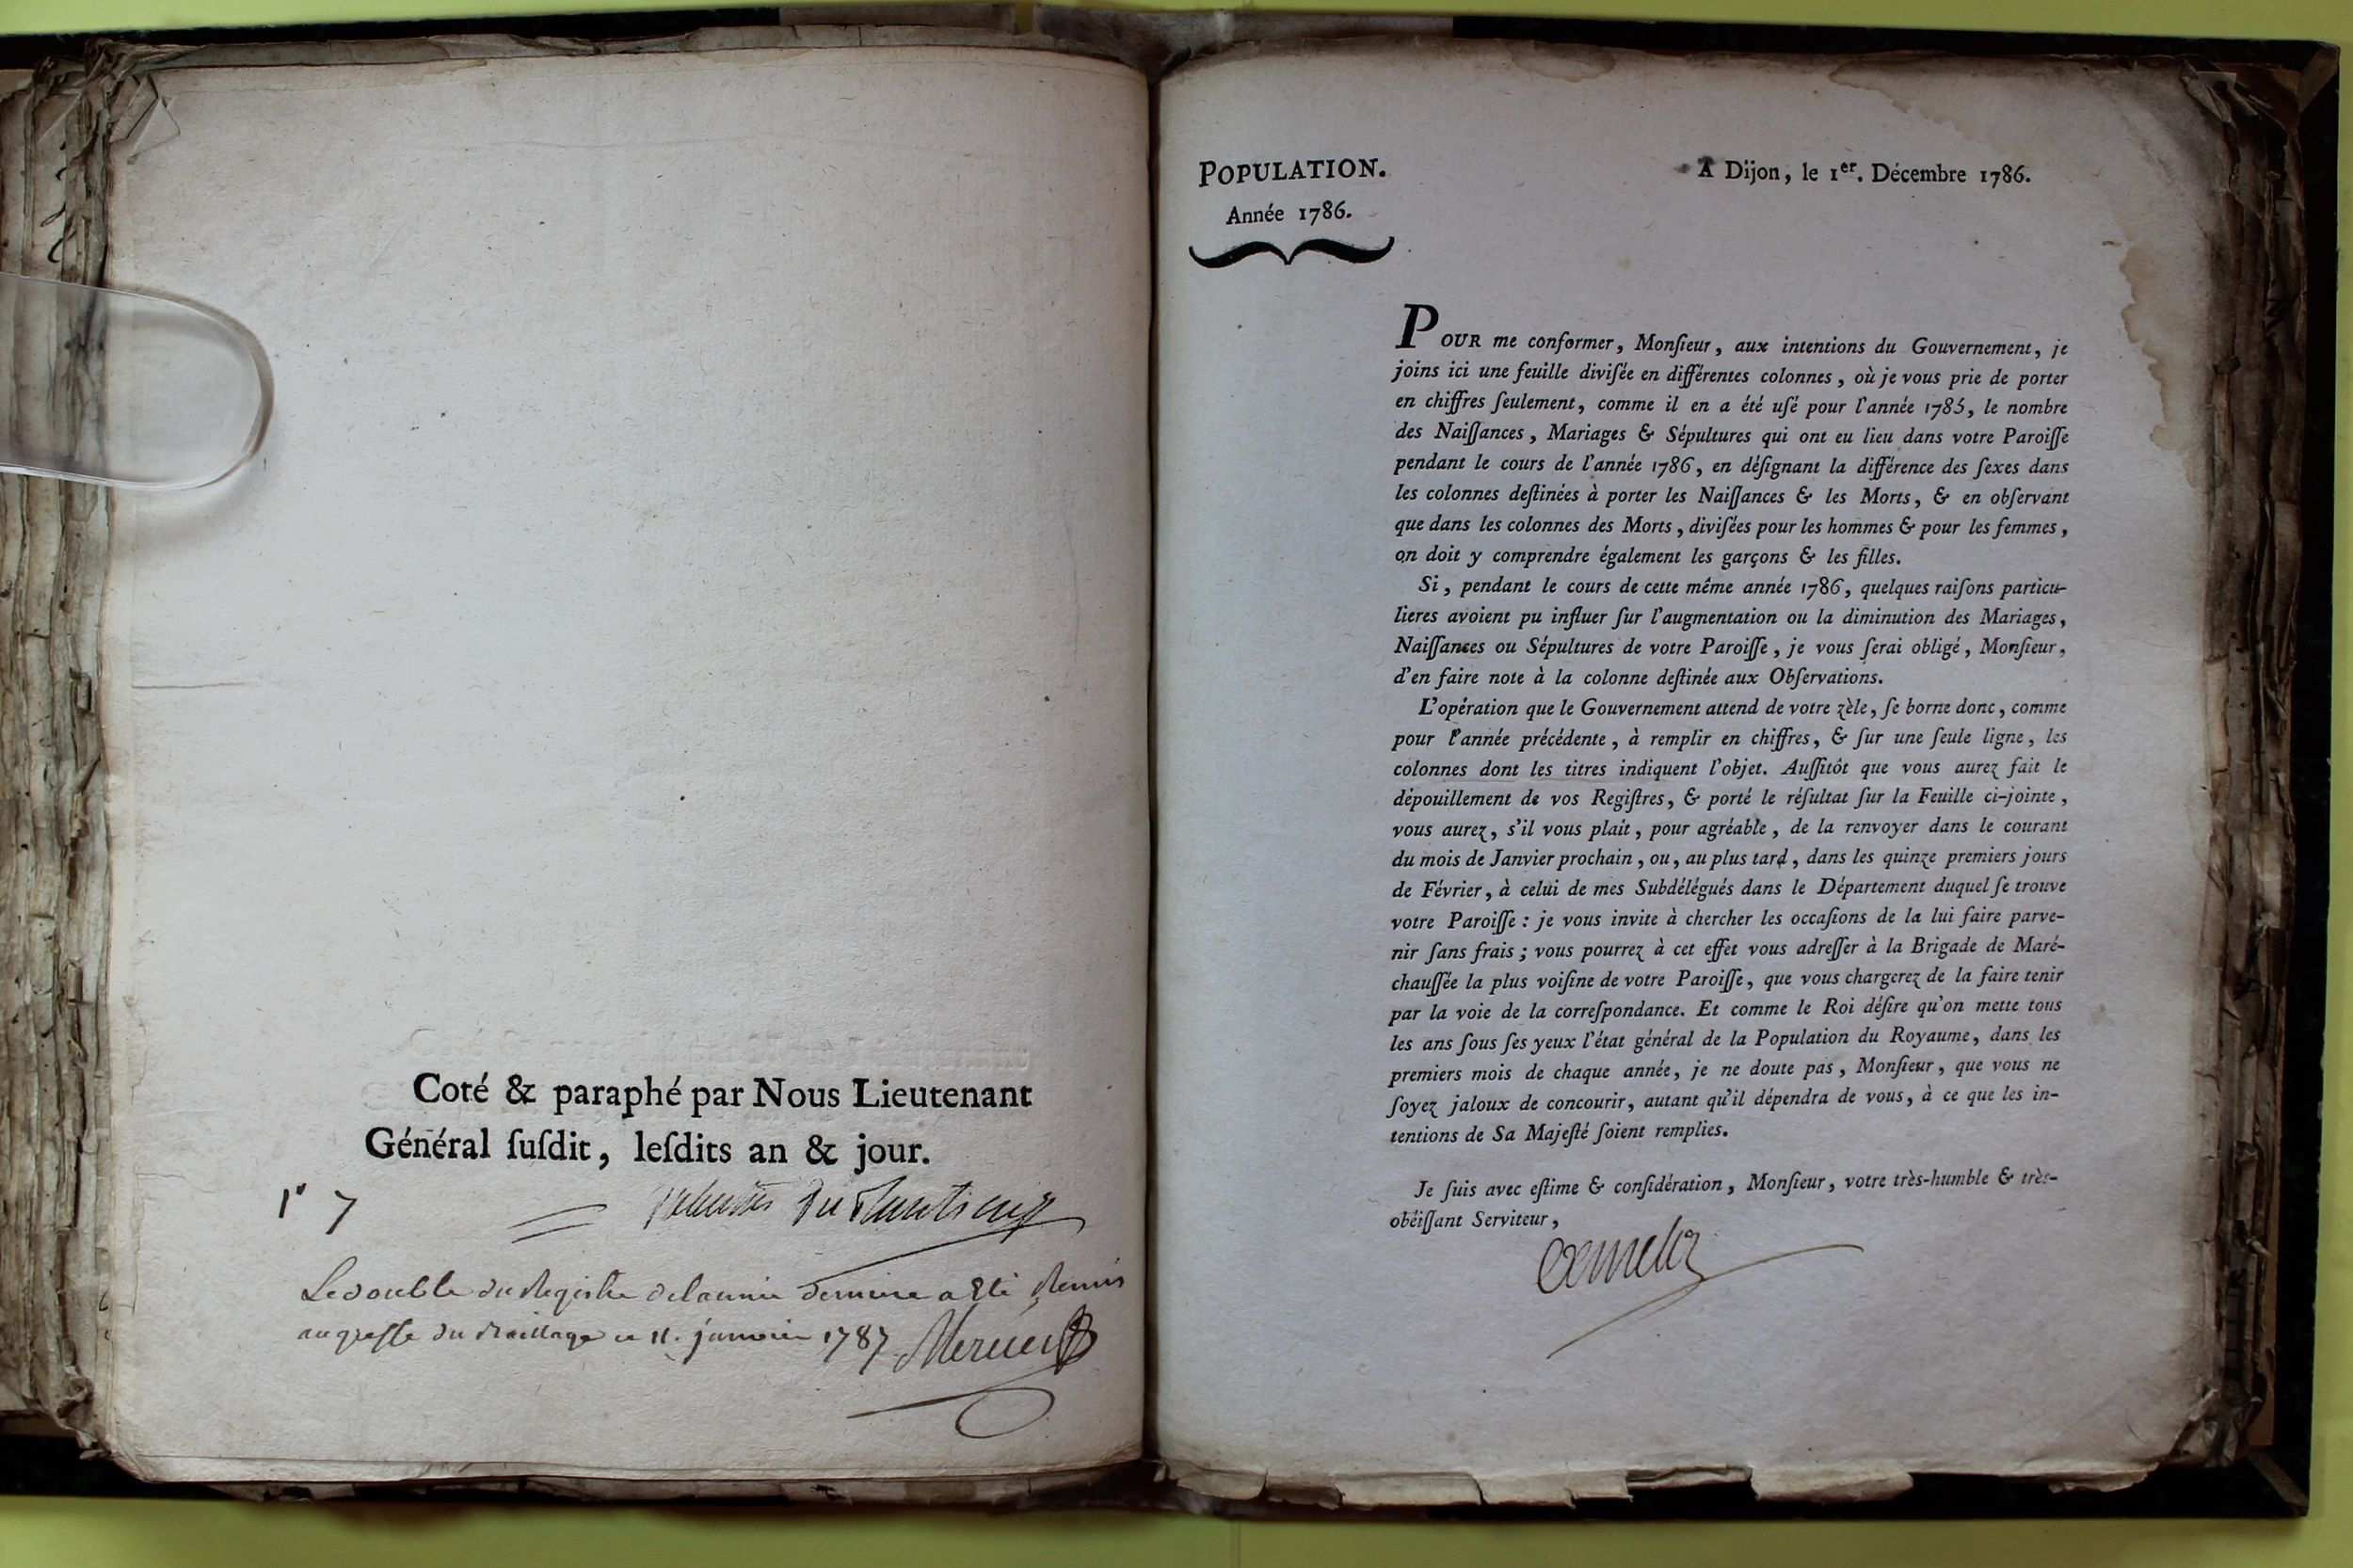 Coté & paraphé par Nous Lieutenant
Général ſuſdit, leſdits an & jour.
Le double du Registre de l'année derniere a Eté Remis
au greffe du Bailliage ce 11. janvier 1787
POPULATION.
Année 1786.
A Dijon, le 1er. Décembre 1786.
POUR me conformer, Monſieur, aux intentions du Gouvernement, je
joins ici une feuille diviſée en différentes colonnes, où je vous prie de porter
en chiffres ſeulement, comme il en a été uſé pour l'année 1785, le nombre
des Naiſſances, Mariages & Sépultures qui ont eu lieu dans votre Paroiſſe
pendant le cours de l'année 1786, en déſignant la différence des ſexes dans
les colonnes deſtinées à porter les Naiſſances & les Morts, & en obſervant
que dans les colonnes des Morts, diviſées pour les hommes & pour les femmes,
on doit y comprendre également les garçons & les filles.
Si, pendant le cours de cette même année 1786, quelques raiſons particu-
lieres avoient pu influer ſur l'augmentation ou la diminution des Mariages,
Naiſſances ou Sépultures de votre Paroiſſe, je vous ſerai obligé, Monſieur,
d'en faire note à la colonne deſtinée aux Obſervations.
L'opération que le Gouvernement attend de votre zèle, ſe borne donc, comme
pour l'année précédente, à remplir en chiffres, & ſur une ſeule ligne, les
colonnes dont les titres indiquent l'objet. Auſſitôt que vous aurez fait le
dépouillement de vos Regiſtres, & porté le réſultat ſur la Feuille ci-jointe,
vous aurez, s'il vous plaît, pour agréable, de la renvoyer dans le courant
du mois de Janvier prochain, ou, au plus tard, dans les quinze premiers jours
de Février, à celui de mes Subdélégués dans le Département duquel ſe trouve
votre Paroiſſe : je vous invite à chercher les occaſions de la lui faire parve-
nir ſans frais ; vous pourrez à cet effet vous adreſſer à la Brigade de Maré-
chauſſée la plus voiſine de votre Paroiſſe, que vous chargerez de la faire tenir
par la voie de la correſpondance. Et comme le Roi déſire qu'on mette tous
les ans ſous ſes yeux l'état général de la Population du Royaume, dans les
premiers mois de chaque année, je ne doute pas, Monſieur, que vous ne
ſoyez jaloux de concourir, autant qu'il dépendra de vous, à ce que les in-
tentions de Sa Majeſté ſoient remplies.
Je ſuis avec eſtime & conſidération, Monſieur, votre très-humble & très-
obéiſſant Serviteur,